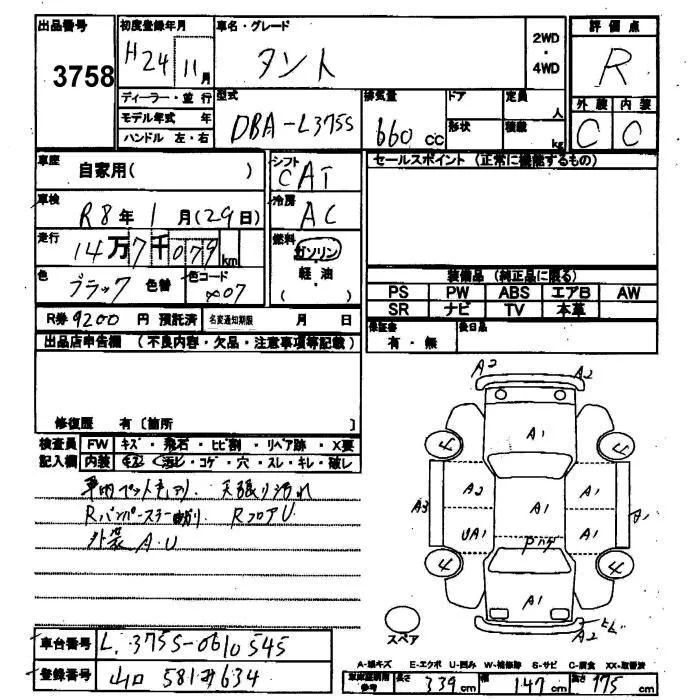 出品番号
3758
初度登録年月
H24 11月
車名・グレード
タント
2WD・4WD
評価点
R
外装 内装
C C
ディーラー・並行
モデル年式 年
ハンドル 左・右
型式
DBA-L375S
排気量
660 cc
ドア
形状
定員 人
積載 kg
車歴
自家用( )
車検
R8年1月(29日)
走行
14万7千079km
色
ブラック 色替
色コード
X07
シフト
CAT
冷房
AC
燃料
ガソリン
軽・油
( )
セールスポイント(正常に機能するもの)
装備品(純正品に限る)
PS PW ABS エアB AW
SR ナビ TV 本革
R券 9200円 預託済 名変通知期限 月 日
保証書 有・無
後日品
出品店申告欄(不良内容・欠品・注意事項等記載)
修復歴 有〔箇所 〕
検査員記入欄
FW キズ・飛石・ヒビ割・リペア跡・X要
内装 キズ・汚レ・コゲ・穴・スレ・キレ・破レ
天張り汚れ
RフロアU
外装 A.U
A2 A2
A1
4 4
A2 A1
A3 A1 A1
UA1 A1
4 4
A1
A2
スペア
A-線キズ E-エクボ U-凹み W-補修跡 S-サビ C-腐食 XX-取替済
車台番号
L375S-0610545
登録番号
山口 581 み 634
参考 長さ 339cm 幅 147cm 高さ 175cm